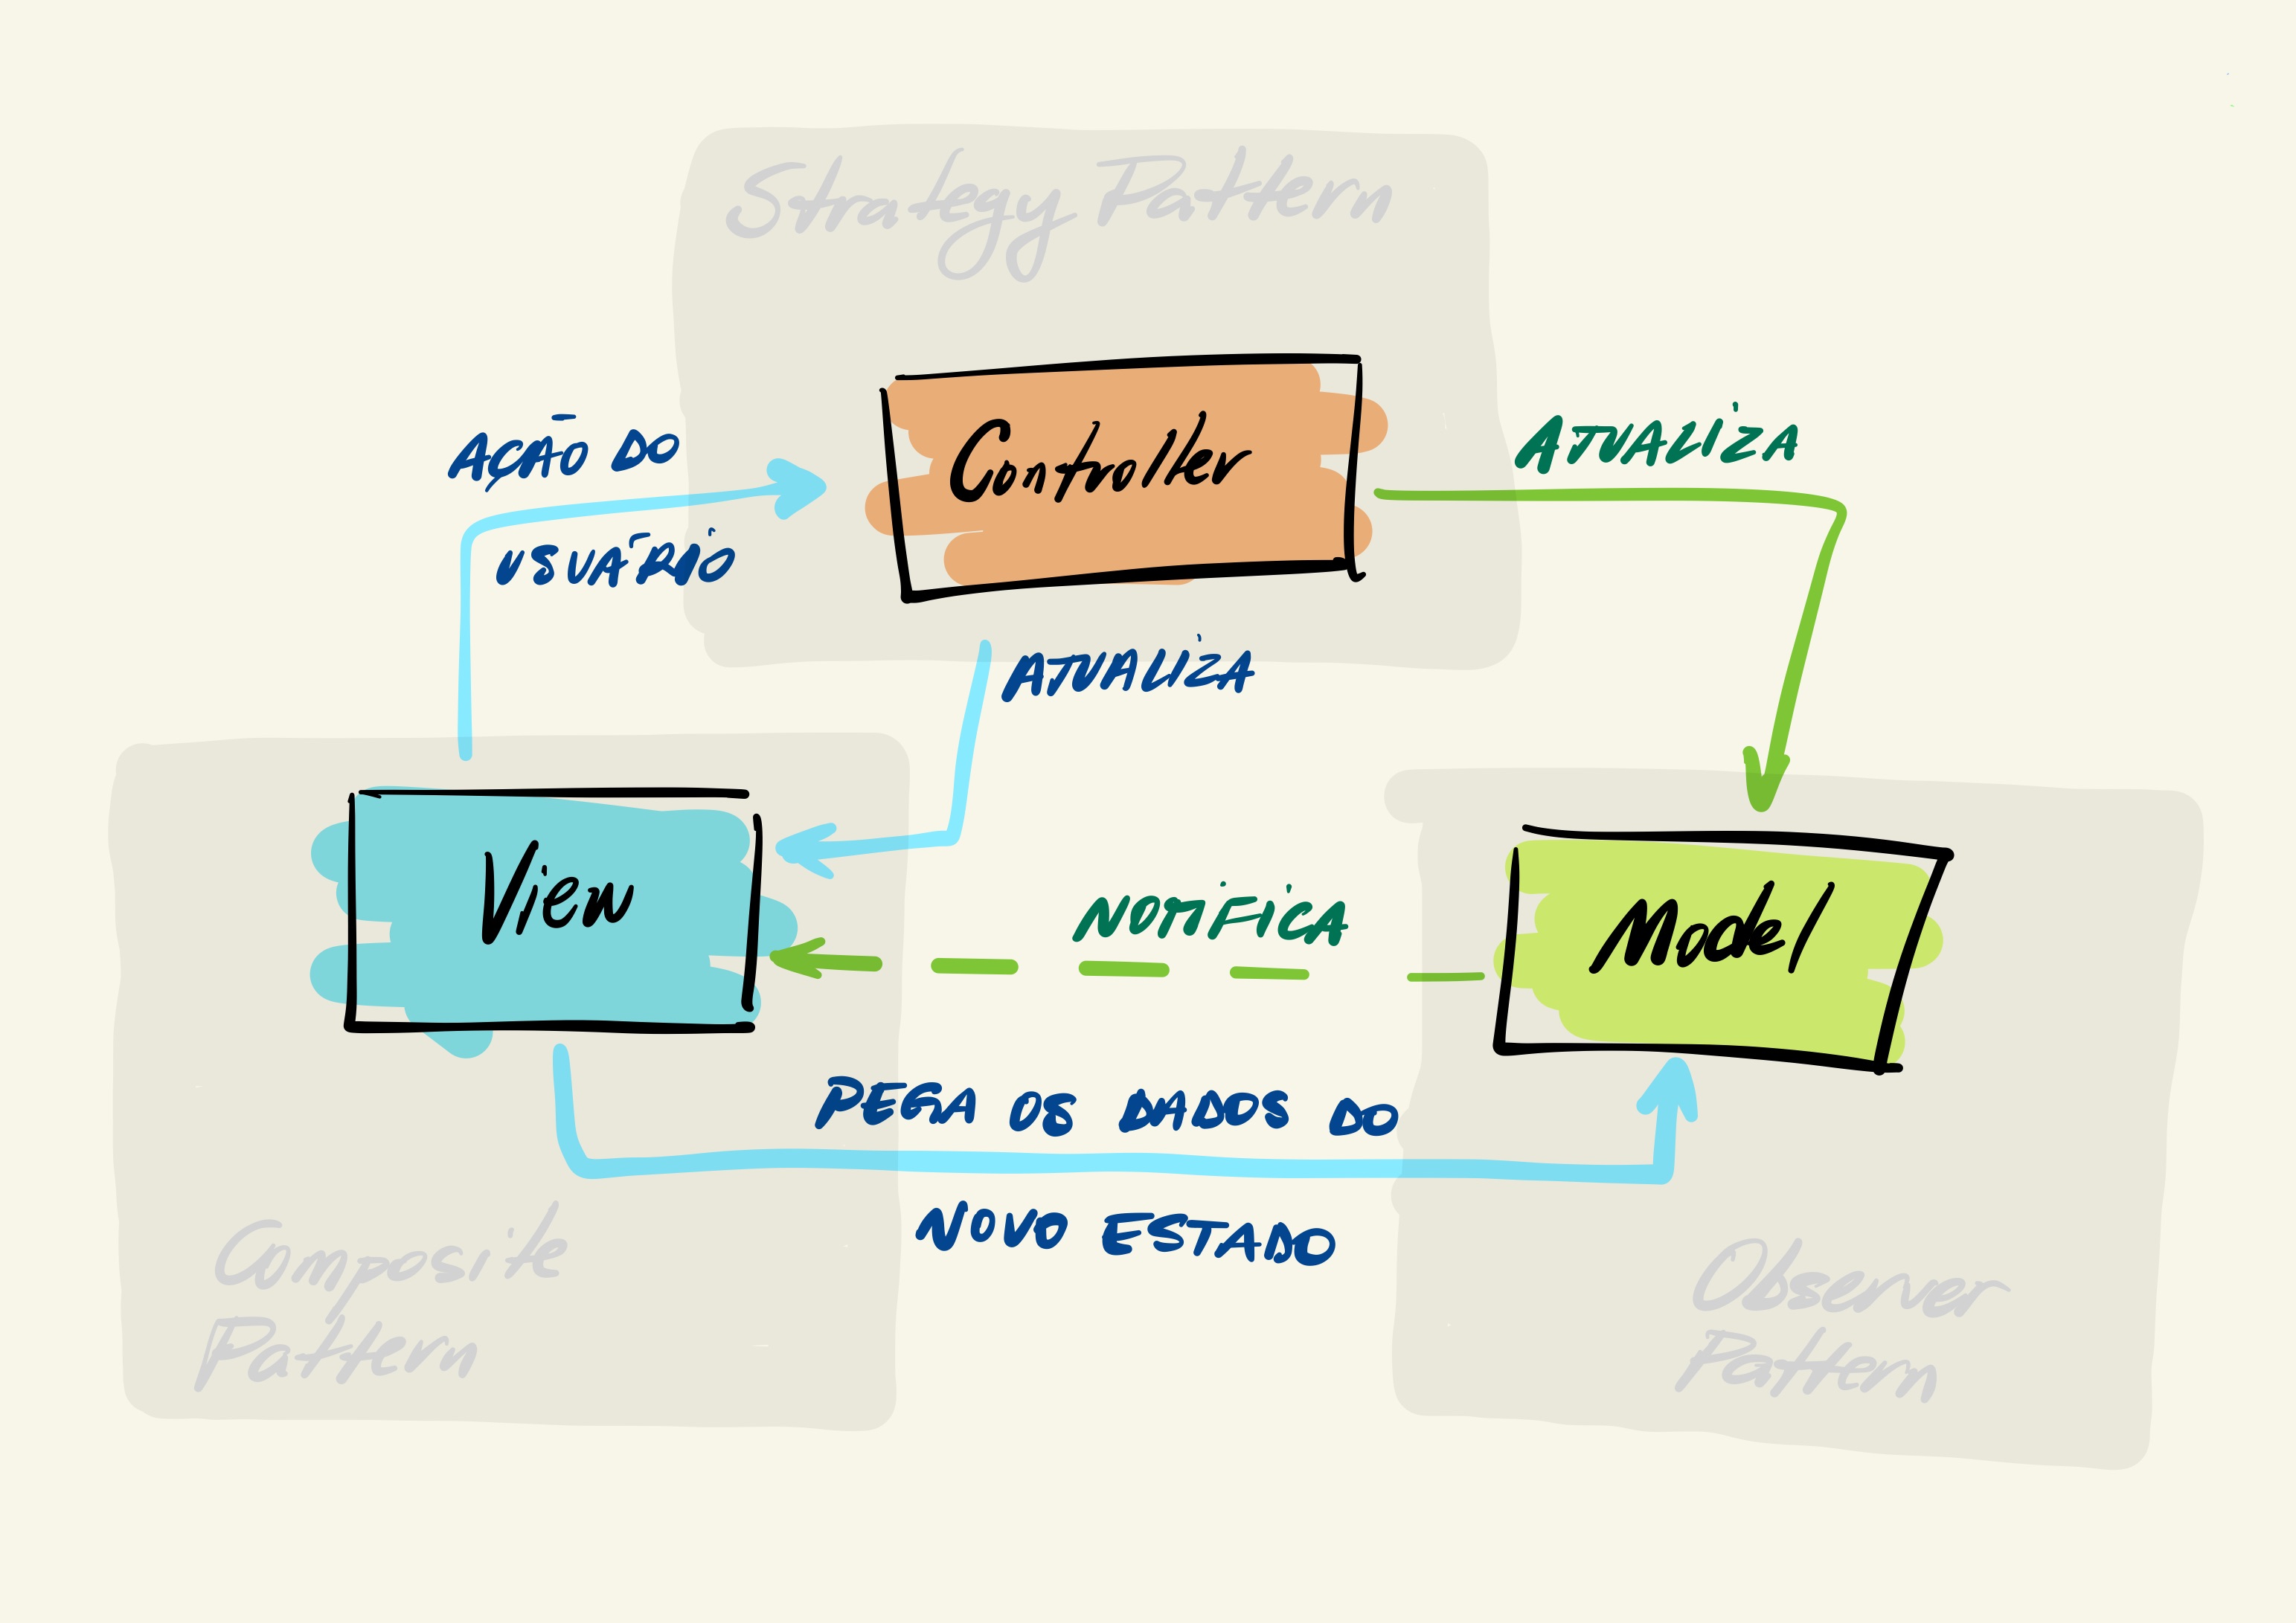 Strategy Pattern
Controller
AÇÃO DO
USUÁRIO
ATUALIZA
ATUALIZA
View
NOTIFICA
Model
PEGA OS DADOS DO
NOVO ESTADO
Composite
Pattern
Observer
Pattern